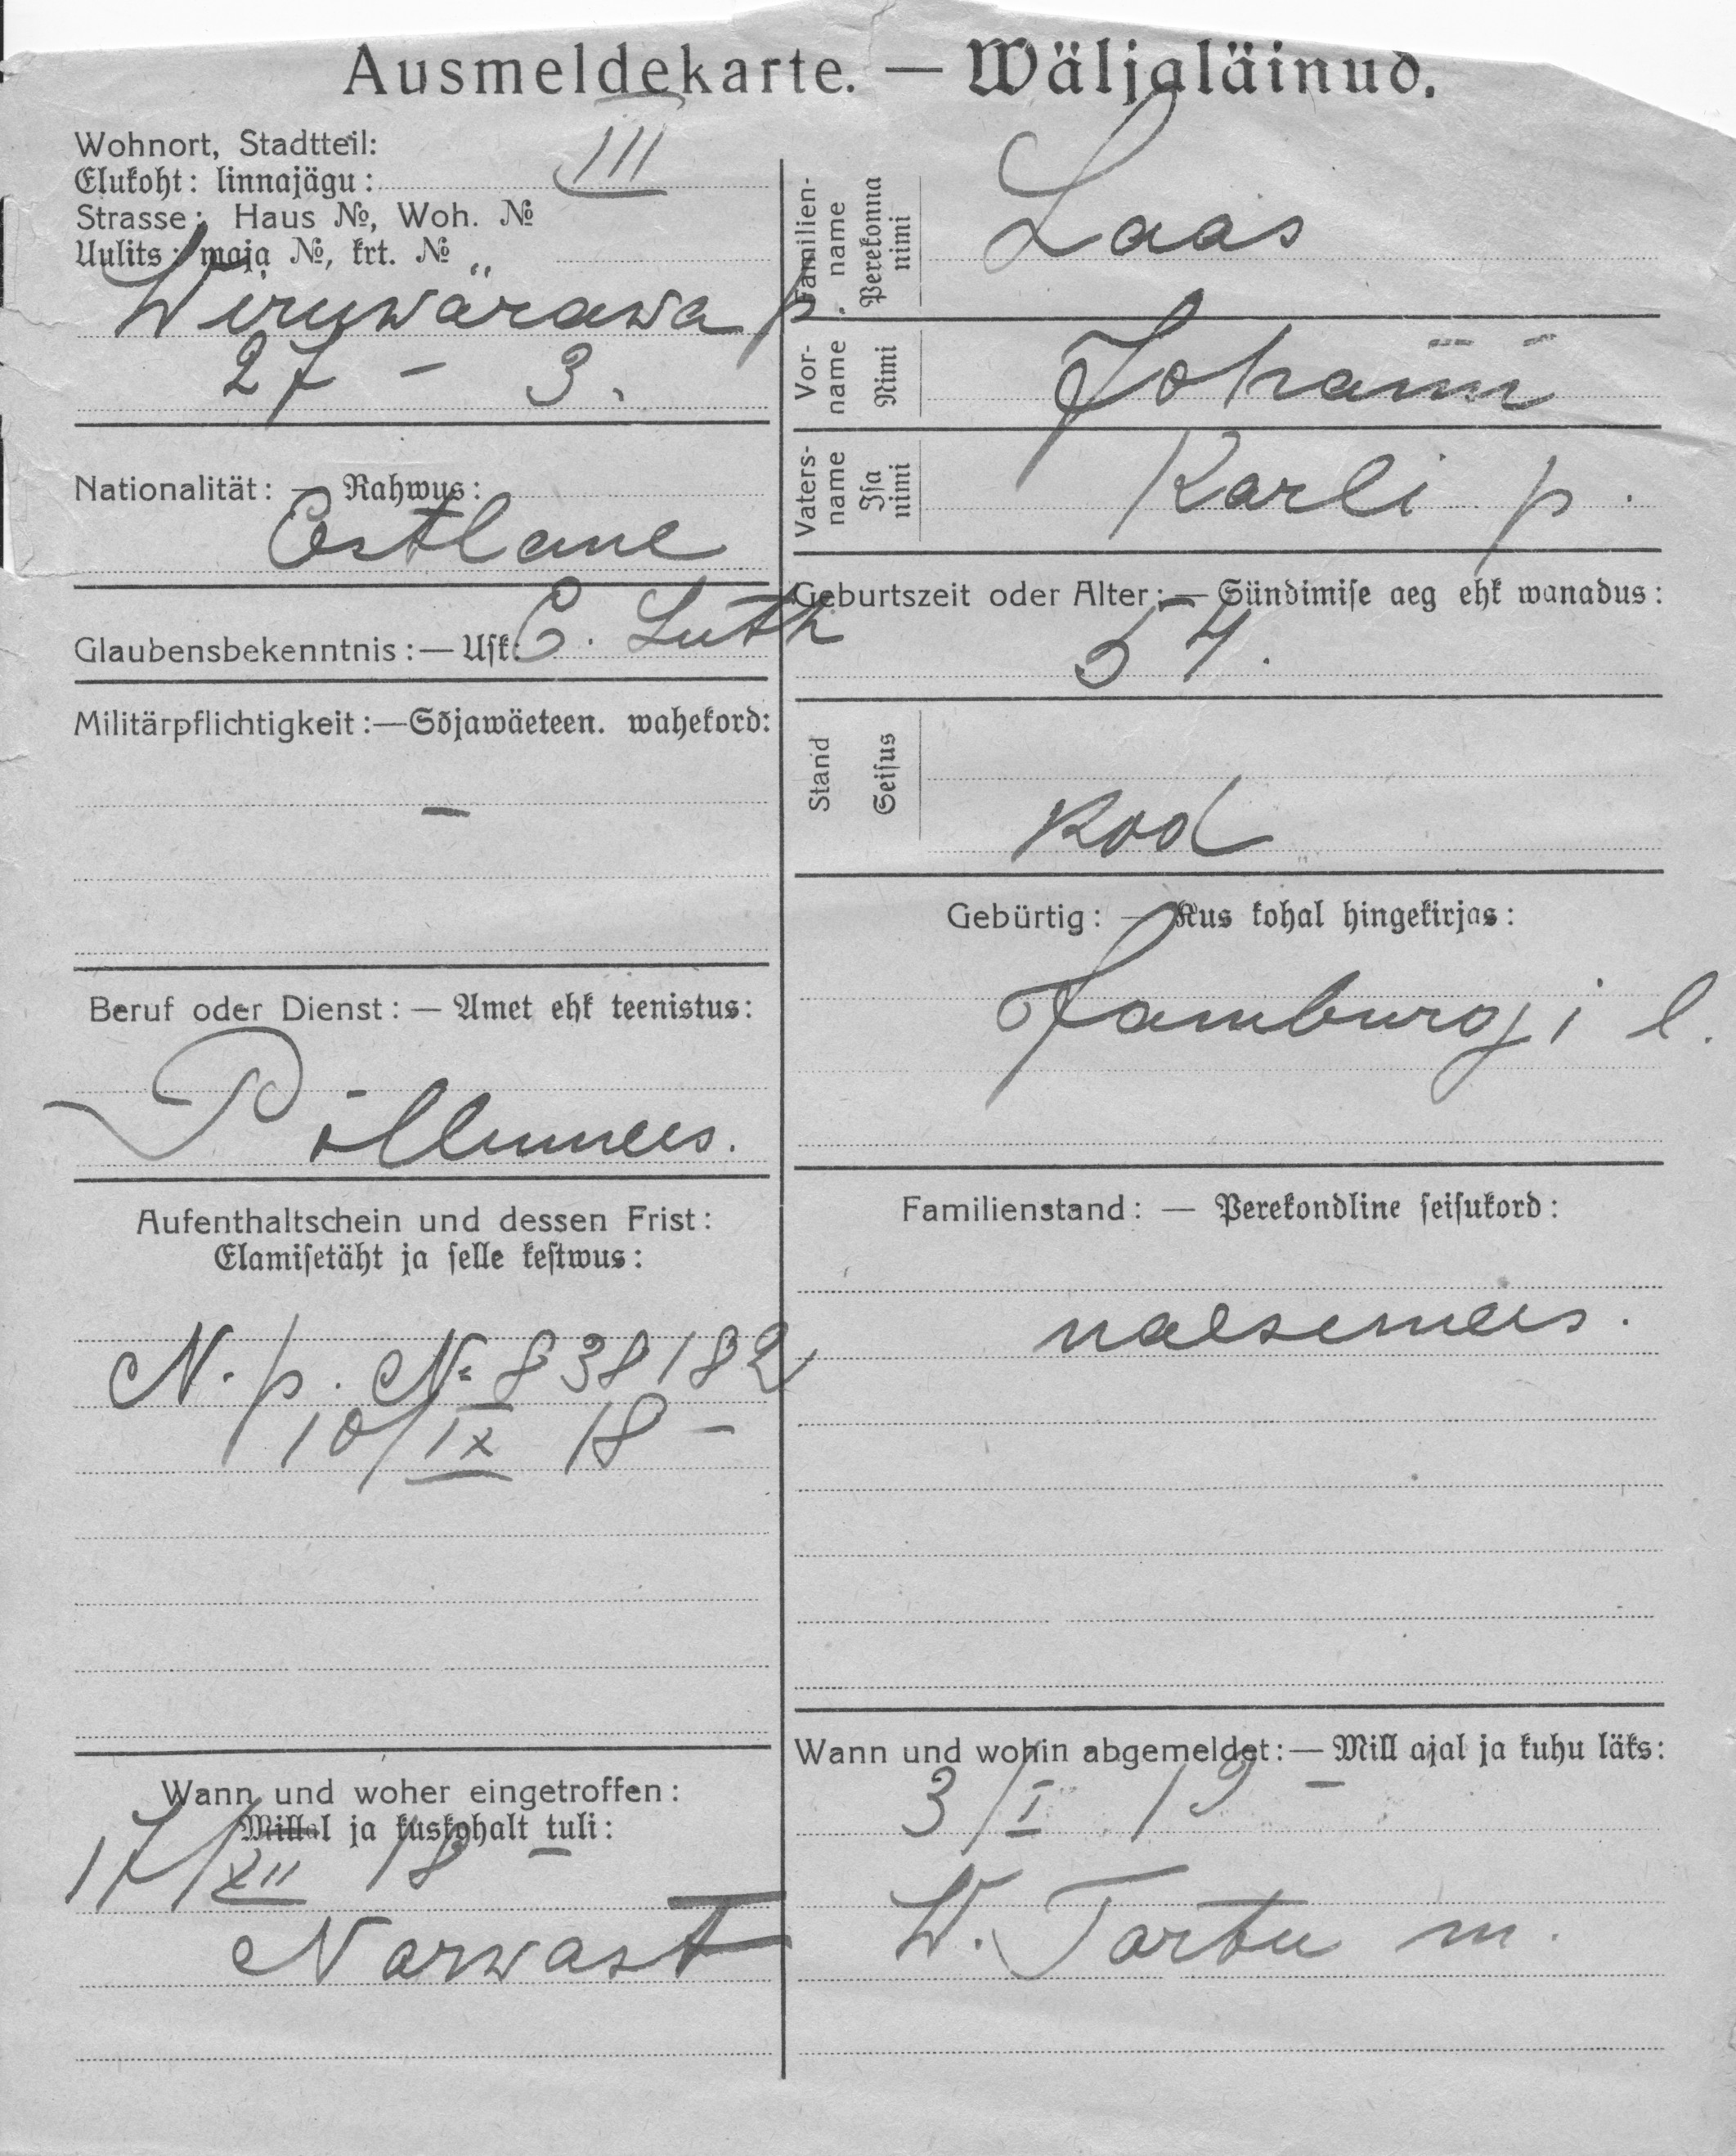 Ausmeldekarte. — Wäljaläinud.
Wohnort, Stadtteil:
Elukoht: linnajägu: III
Strasse; Haus №, Woh. №
Uulits: maja №, krt. №
Wiruwärawa p.
27 - 3.
Nationalität: — Rahwus:
Eestlane
Glaubensbekenntnis:— Usk: E. Luth
Militärpflichtigkeit:—Sõjawäeteen. wahekord:
—
Beruf oder Dienst: — Amet ehk teenistus:
Põllumees.
Aufenthaltschein und dessen Frist:
Elamisetäht ja selle kestwus:
N. p. № 838182
10/IX 18 -
Wann und woher eingetroffen:
Millal ja kuskohalt tuli:
17/XII 18 -
Narwast
Familien-name
Perekonna nimi
Laas
Vor-name
Nimi
Johann
Vaters-name
Isa nimi
Karli p.
Geburtszeit oder Alter: — Sündimise aeg ehk wanadus:
54.
Stand
Seisus
Kod
Gebürtig: — Kus kohal hingekirjas:
Jamburgi l.
Familienstand: — Perekondline seisukord:
naesemees.
Wann und wohin abgemeldet:— Mill ajal ja kuhu läks:
3/I 19 -
W. Tartu m.